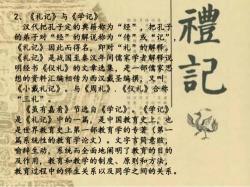 2、《礼记》与《学记》
汉代把孔子定的典籍称为“经”，把孔子
的弟子对“经”的解说称为“传”或“记”，
《礼记》因此而得名，即对“礼”的解释。
《礼记》是战国至秦汉年间儒家学者解释说
明经书《仪礼》的文章选集，是一部儒家思
想的资料汇编相传为西汉戴圣编撰。又叫
《小戴礼记》，与《周礼》、《仪礼》合称
“三礼”。
《虽有嘉肴》节选自《学记》。《学记》
是《礼记》中的一篇，是中国教育史上，也
是世界教育史上第一部教育学的专著（第一
篇系统性的教育学论文），文字言简意赅，
喻辞生动，系统而全面地阐明了教育的目的
及作用，教育和教学的制度、原则和方法，
教育过程中的师生关系以及同学之间的关系。
禮記